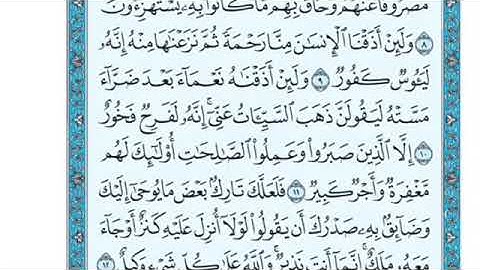 مَصْرُوفًا عَنْهُمْ وَحَاقَ بِهِم مَّا كَانُوا۟ بِهِۦ يَسْتَهْزِءُونَ
٨ وَلَئِنْ أَذَقْنَا ٱلْإِنسَـٰنَ مِنَّا رَحْمَةً ثُمَّ نَزَعْنَـٰهَا مِنْهُ إِنَّهُۥ
لَيَـُٔوسٌ كَفُورٌ ٩ وَلَئِنْ أَذَقْنَـٰهُ نَعْمَآءَ بَعْدَ ضَرَّآءَ
مَسَّتْهُ لَيَقُولَنَّ ذَهَبَ ٱلسَّيِّـَٔاتُ عَنِّىٓ ۚ إِنَّهُۥ لَفَرِحٌ فَخُورٌ
١٠ إِلَّا ٱلَّذِينَ صَبَرُوا۟ وَعَمِلُوا۟ ٱلصَّـٰلِحَـٰتِ أُو۟لَـٰٓئِكَ لَهُم
مَّغْفِرَةٌ وَأَجْرٌ كَبِيرٌ ١١ فَلَعَلَّكَ تَارِكٌۢ بَعْضَ مَا يُوحَىٰٓ إِلَيْكَ
وَضَآئِقٌۢ بِهِۦ صَدْرُكَ أَن يَقُولُوا۟ لَوْلَآ أُنزِلَ عَلَيْهِ كَنزٌ أَوْ جَآءَ
مَعَهُۥ مَلَكٌ ۚ إِنَّمَآ أَنتَ نَذِيرٌ ۚ وَٱللَّهُ عَلَىٰ كُلِّ شَىْءٍ وَكِيلٌ ١٢